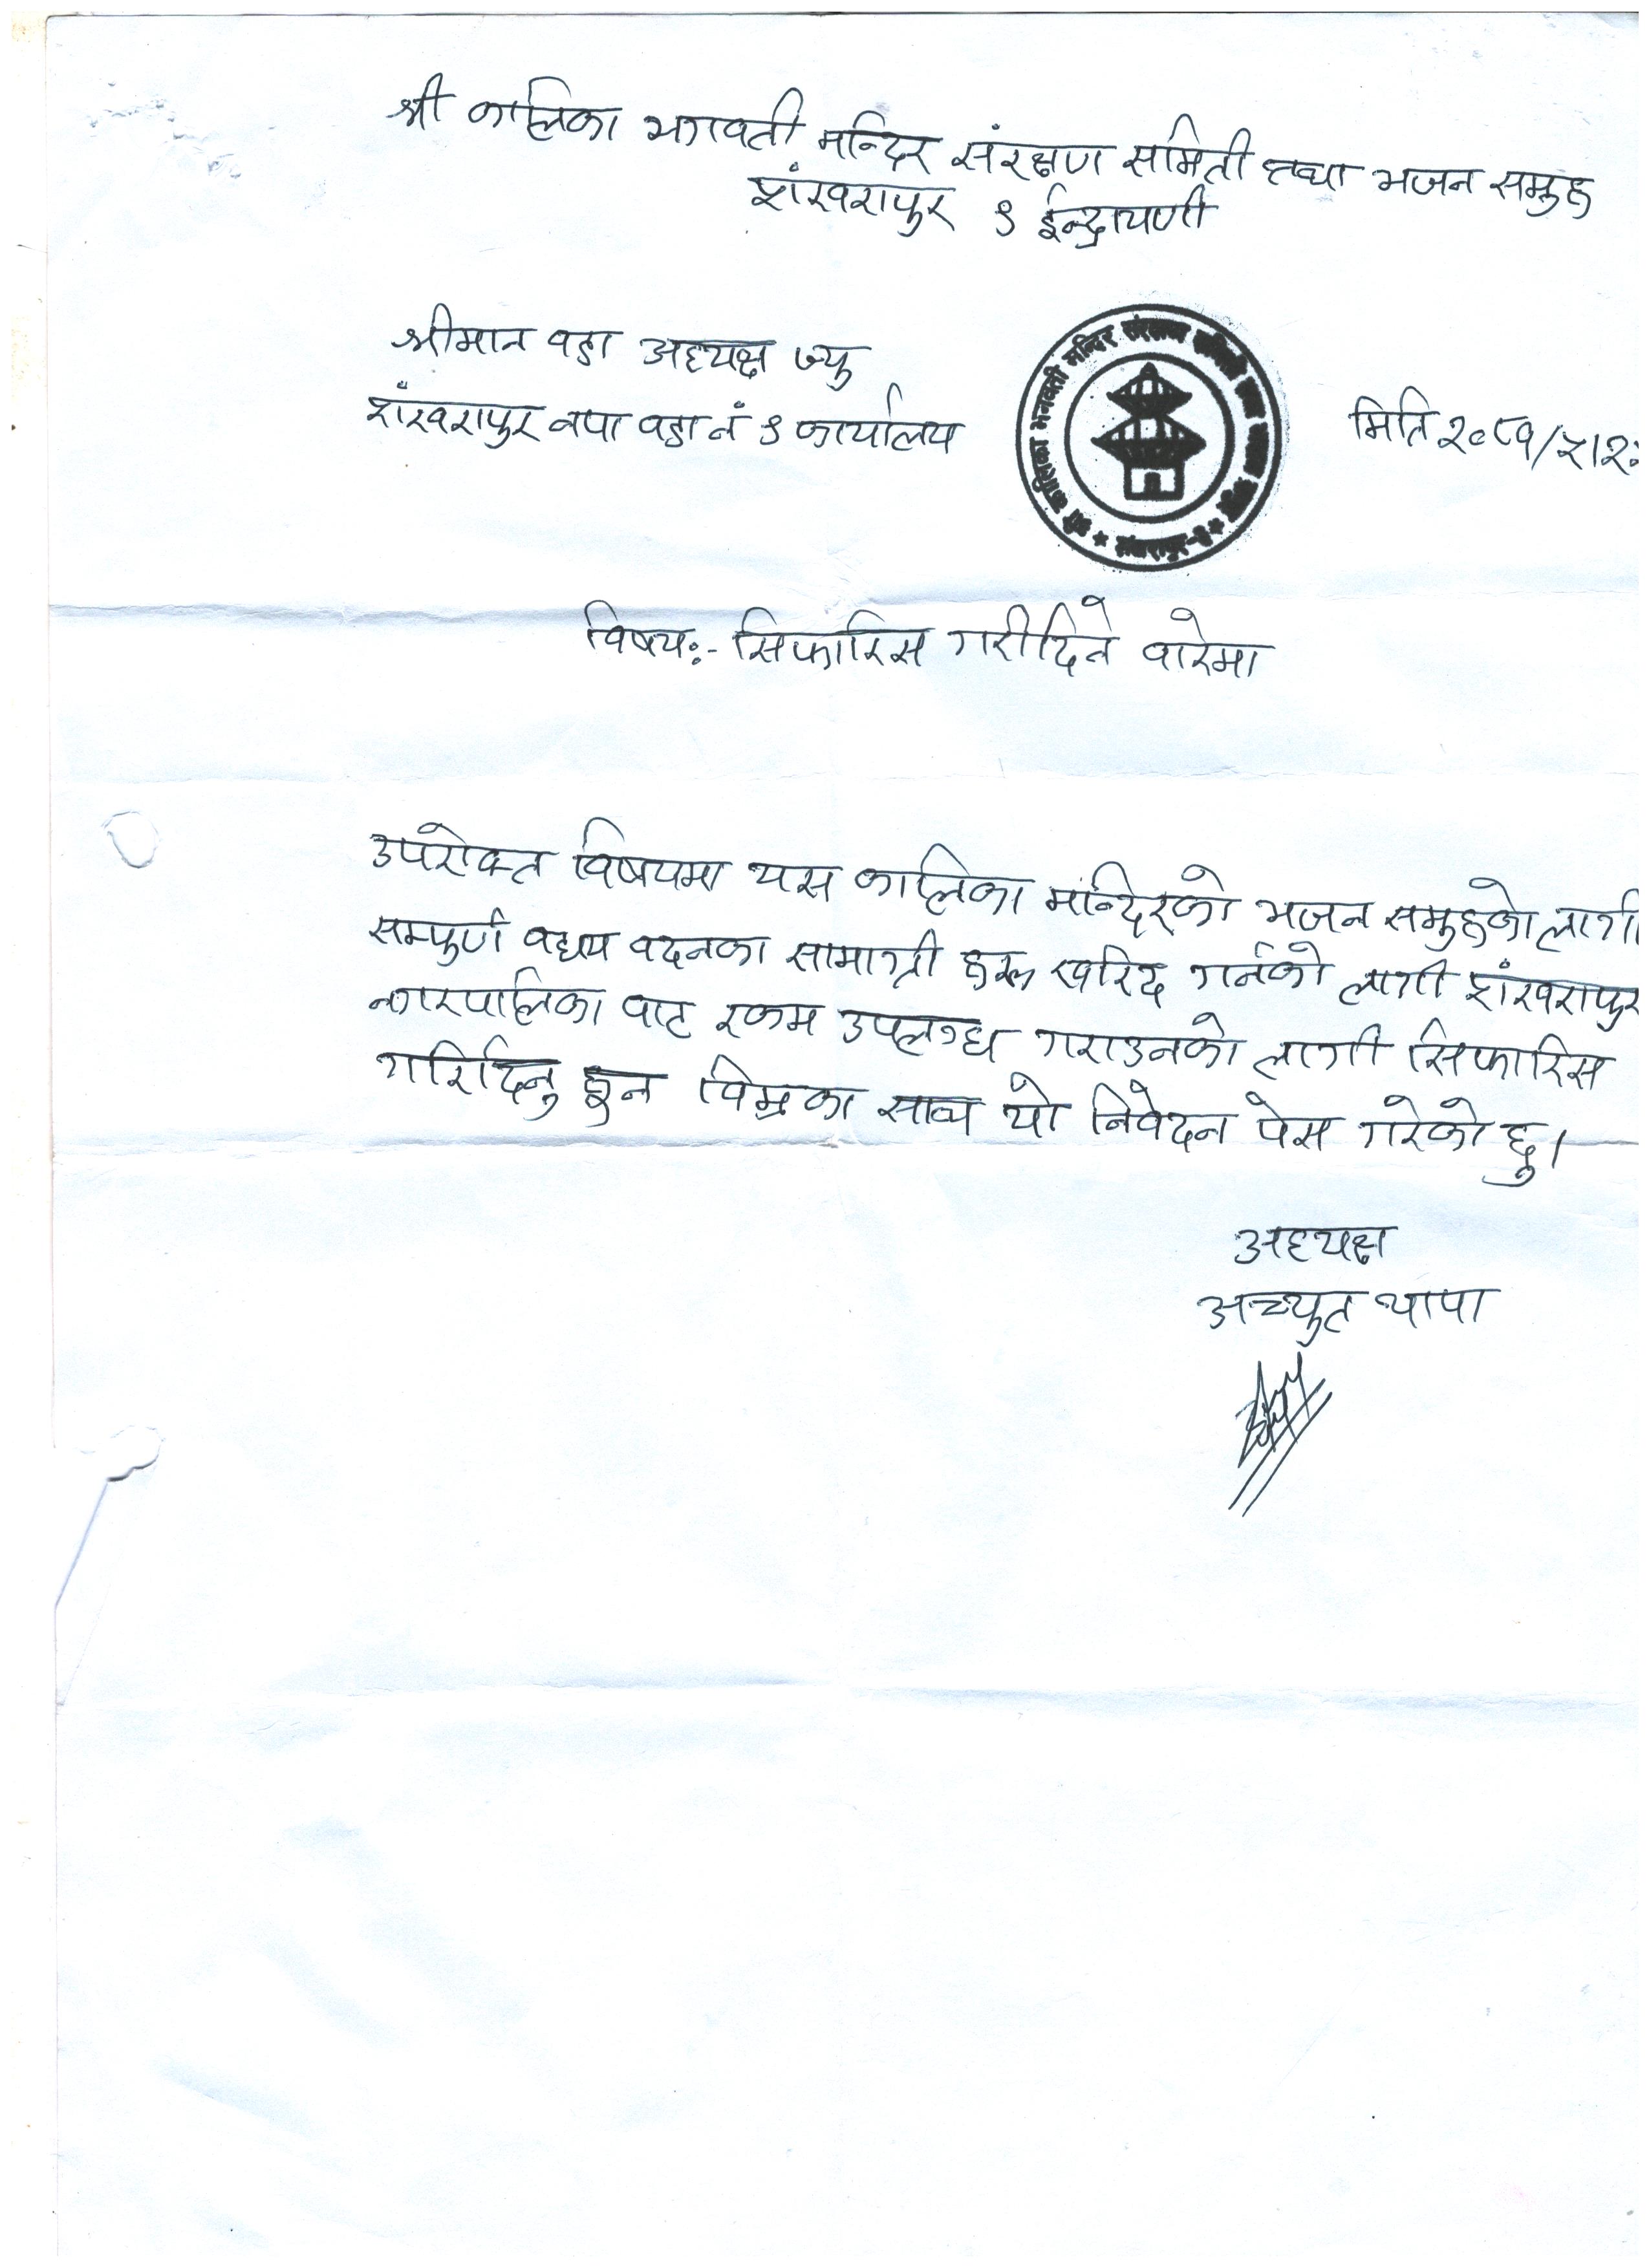 श्री कालिका भगवती मन्दिर संरक्षण समिती तथा भजन समुह
शंखरापुर ९ ईन्द्रायणी
श्रीमान वडा अध्यक्ष ज्यु
शंखरापुर नपा वडा नं ९ कार्यालय
श्री कालिका भगवती मन्दिर संरक्षण समिती तथा भजन समुह
शंखरापुर-९
मिति २०८१/५/२
विषय:- सिफारिस गरीदिने वारेमा
उपरोक्त विषयमा यस कालिका मन्दिरको भजन समुहको लागी
सम्पुर्ण वधय वदनका सामाग्री हरु खरिद गर्नको लागी शंखरापुर
नगरपालिका वाट रकम उपलग्ध गराउनको लागी सिफारिस
गरिदिनु हुन विम्रका साथ यो निवेदन पेस गरेको छु।
अध्यक्ष
अच्युत थापा